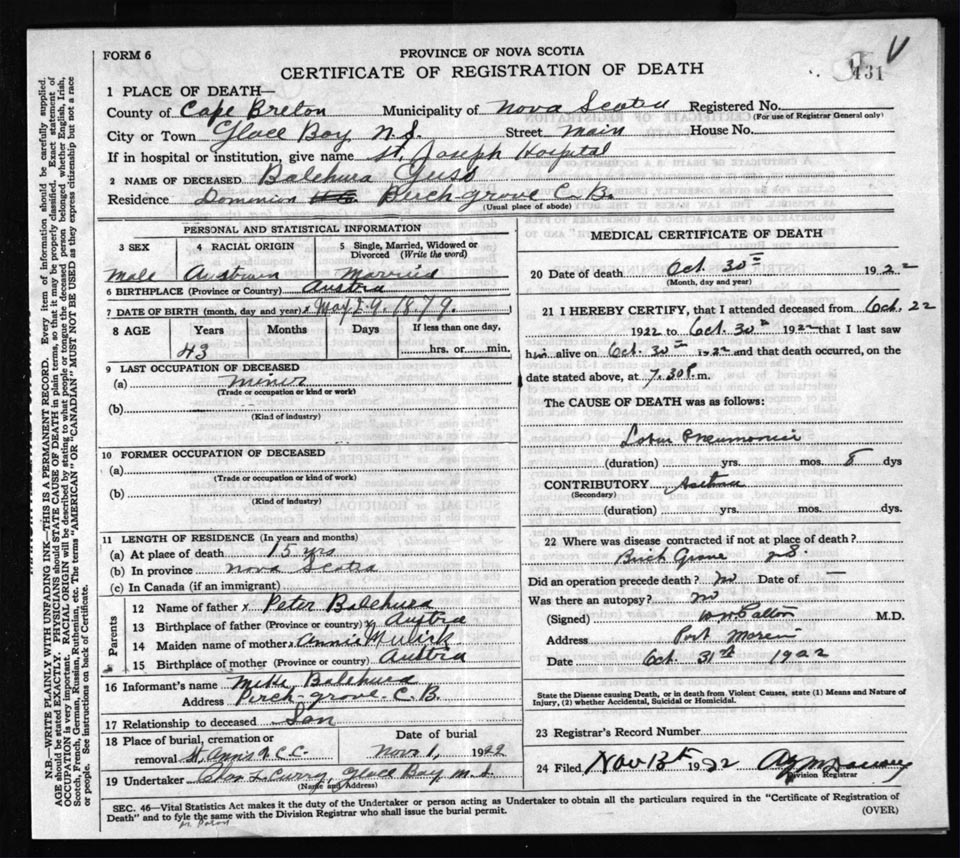 FORM 6
PROVINCE OF NOVA SCOTIA
CERTIFICATE OF REGISTRATION OF DEATH
431
1 PLACE OF DEATH—
County of Cape Breton Municipality of Nova Scotia Registered No.
(For use of Registrar General only)
City or Town Glace Bay N.S. Street Main House No.
If in hospital or institution, give name St. Joseph Hospital
2 NAME OF DECEASED Balehura
Residence Dominion Birch grove C.B.
(Usual place of abode)
PERSONAL AND STATISTICAL INFORMATION
3 SEX 4 RACIAL ORIGIN 5 Single, Married, Widowed or Divorced (Write the word)
Male Austrian Married
6 BIRTHPLACE (Province or Country) Austria
7 DATE OF BIRTH (month, day and year) May 1879.
8 AGE Years Months Days If less than one day,
43 hrs. or min.
9 LAST OCCUPATION OF DECEASED
(a) Miner
(Trade or occupation or kind or work)
(b)
(Kind of industry)
10 FORMER OCCUPATION OF DECEASED
(a)
(Trade or occupation or kind of work)
(b)
(Kind of industry)
11 LENGTH OF RESIDENCE (In years and months)
(a) At place of death 15 yrs
(b) In province Nova Scotia
(c) In Canada (if an immigrant)
Parents
12 Name of father x Peter Balehura
13 Birthplace of father (Province or country) x Austria
14 Maiden name of mother x Annie
15 Birthplace of mother (Province or country) Austria
16 Informant's name Balehura
Address Birch grove C.B.
17 Relationship to deceased Son
18 Place of burial, cremation or Date of burial
removal St. Anns R.C.C. Nov 1, 1922
19 Undertaker Curry, Glace Bay N.S.
(Name and Address)
MEDICAL CERTIFICATE OF DEATH
20 Date of death Oct 30th 1922
(Month, day and year)
21 I HEREBY CERTIFY, that I attended deceased from Oct. 22
1922 to Oct. 30th 1922 that I last saw
him alive on Oct. 30th 1922 and that death occurred, on the
date stated above, at 7.30 P.m.
The CAUSE OF DEATH was as follows:
Lobar Pneumonia
(duration) yrs. mos. 8 dys
CONTRIBUTORY
(Secondary)
(duration) yrs. mos. dys.
22 Where was disease contracted if not at place of death?
Birch Grove N.S.
Did an operation precede death? No Date of —
Was there an autopsy? No
(Signed) M.D.
Address Port Morien
Date Oct. 31st 1922
State the Disease causing Death, or in death from Violent Causes, state (1) Means and Nature of
Injury, (2) whether Accidental, Suicidal or Homicidal.
23 Registrar's Record Number
24 Filed Nov 13th 1922
Division Registrar
SEC. 46—Vital Statistics Act makes it the duty of the Undertaker or person acting as Undertaker to obtain all the particulars required in the "Certificate of Registration of
Death" and to fyle the same with the Division Registrar who shall issue the burial permit.
(OVER)
N.B.—WRITE PLAINLY WITH UNFADING INK—THIS IS A PERMANENT RECORD. Every item of information should be carefully supplied.
AGE should be stated EXACTLY. PHYSICIANS should STATE CAUSE OF DEATH in plain terms, so that it may be properly classified. Exact statement of
OCCUPATION is very important. RACIAL ORIGIN will be described by stating to what people or tongue the deceased person belonged, whether English, Irish,
Scotch, French, German, Russian, Ruthenian, etc. The terms "AMERICAN" OR "CANADIAN" MUST NOT BE USED as they express citizenship but not a race
or people. See instructions on back of Certificate.